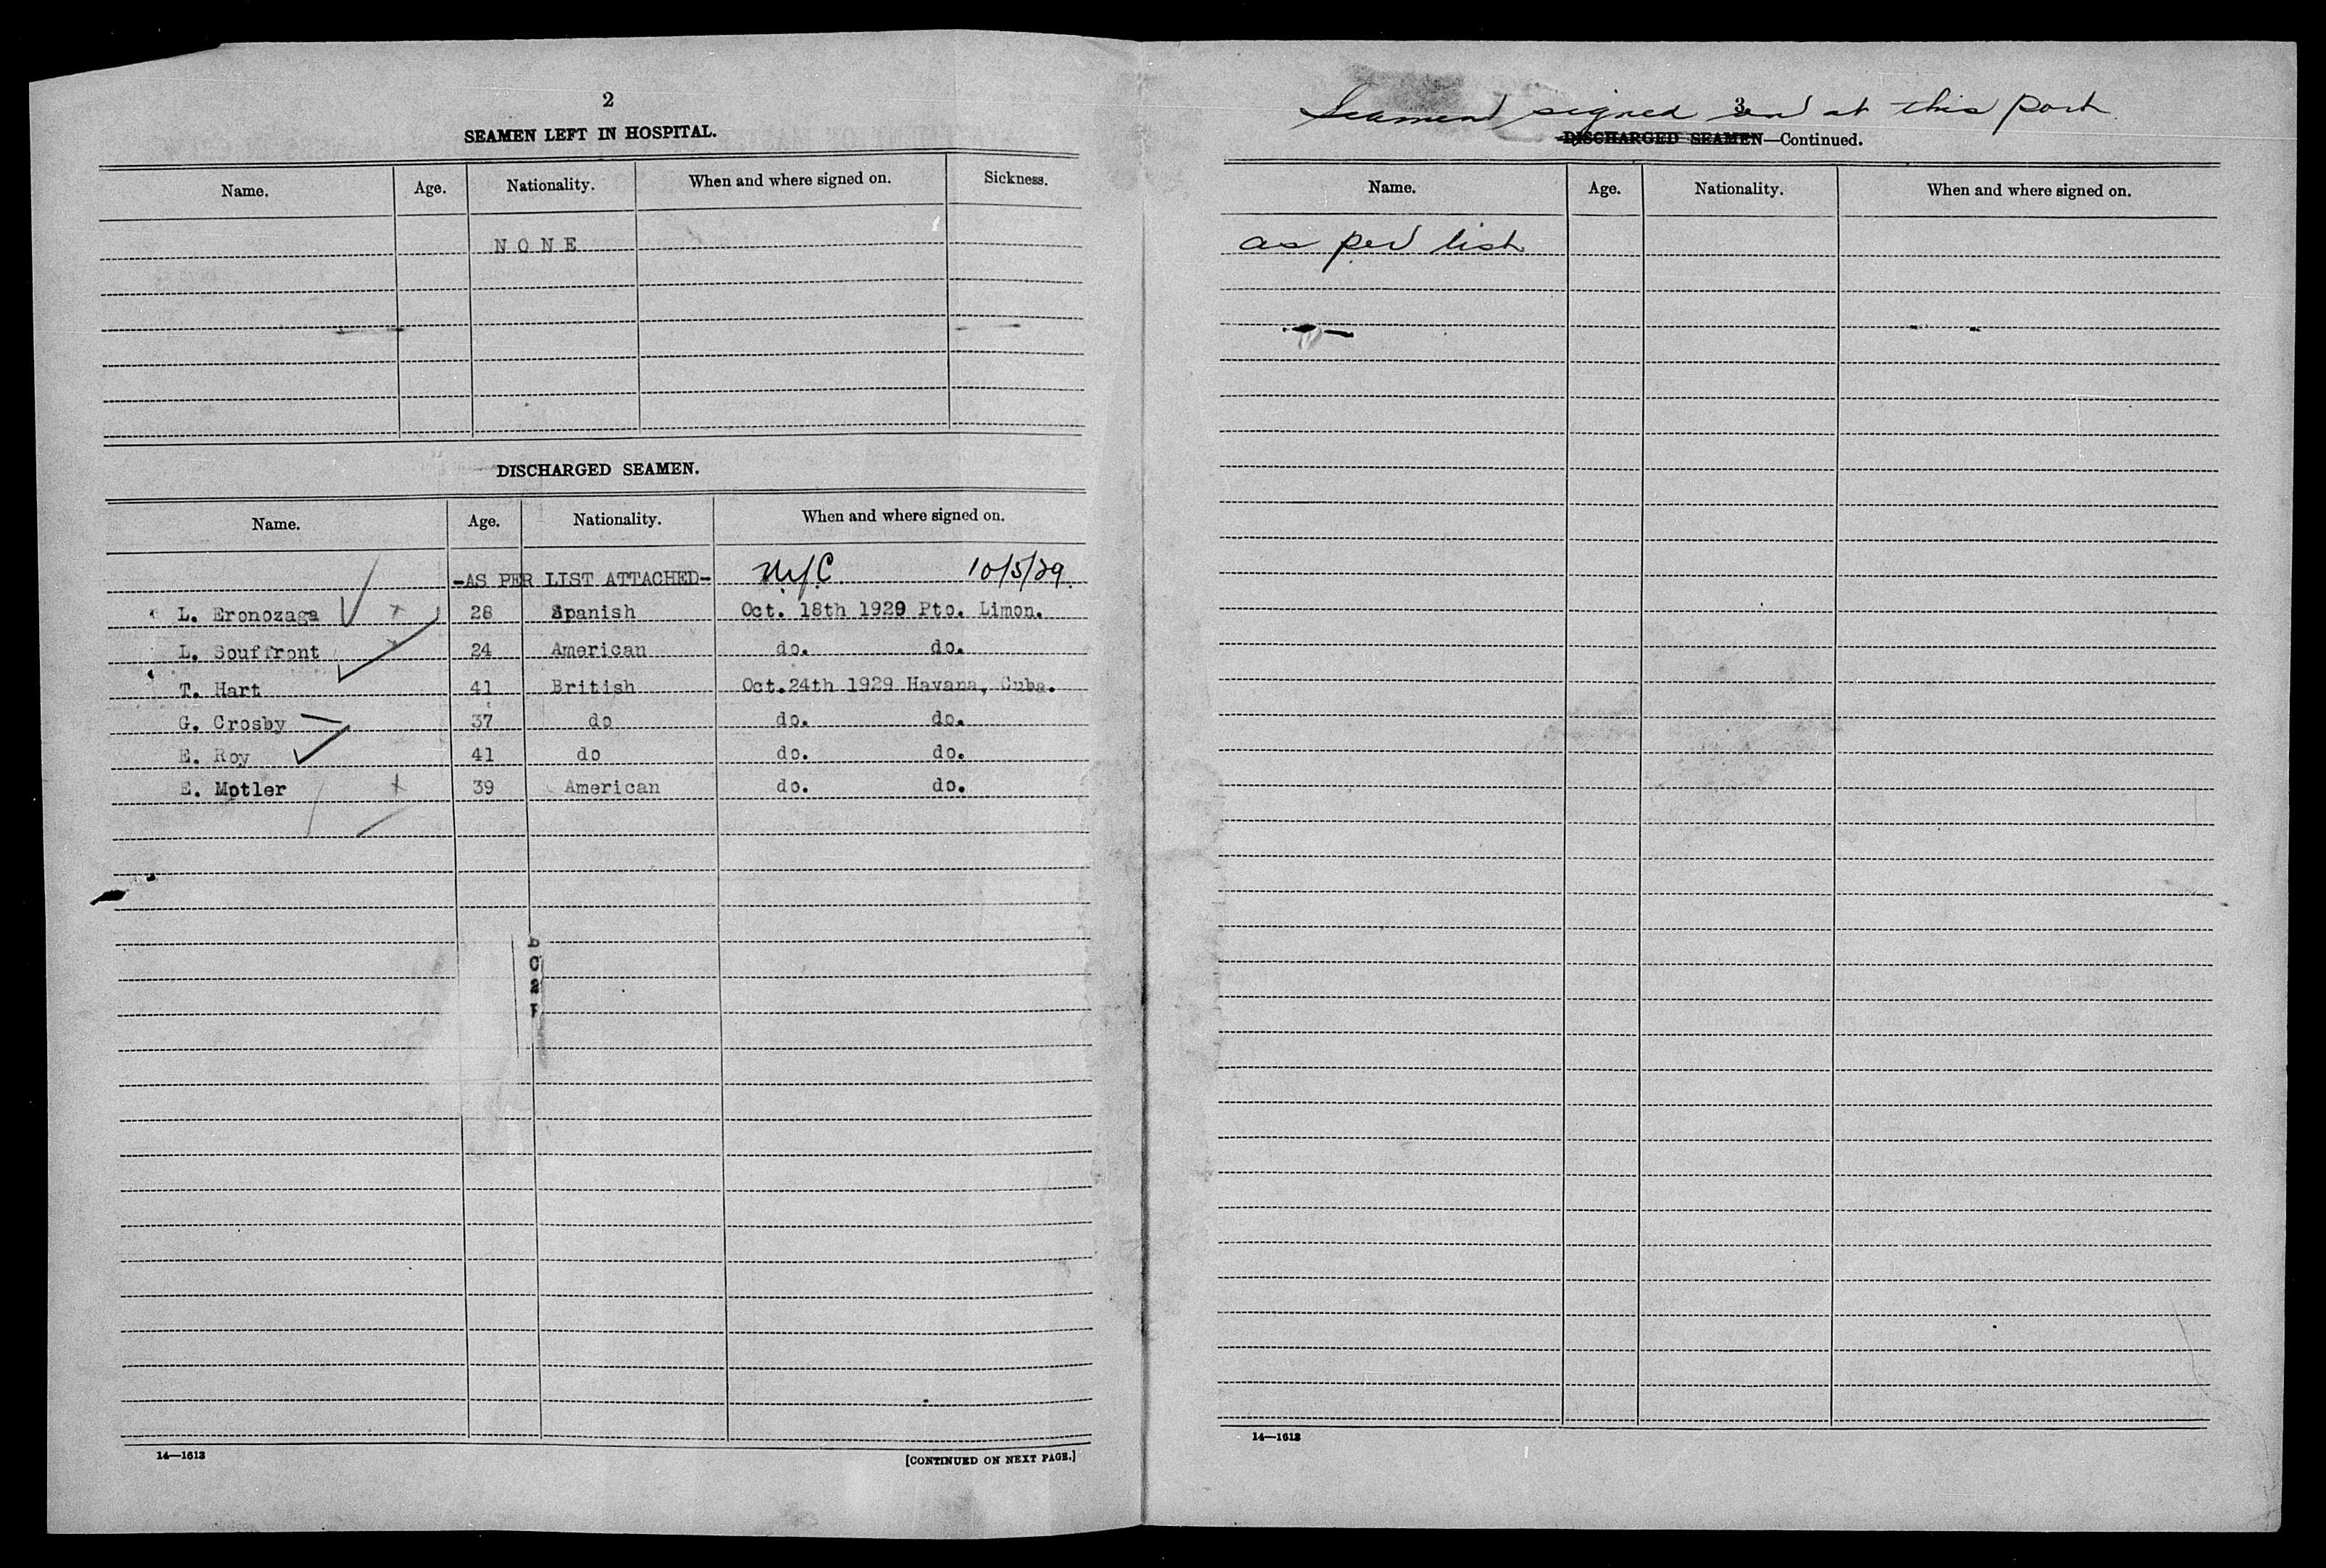 2
SEAMEN LEFT IN HOSPITAL.
Name. Age. Nationality. When and where signed on. Sickness.
NONE
DISCHARGED SEAMEN.
Name. Age. Nationality. When and where signed on.
-AS PER LIST ATTACHED- 10/5/29.
L. Eronozaga 28 Spanish Oct. 18th 1929 Pto. Limon.
L. Souffront 24 American do. do.
T. Hart 41 British Oct.24th 1929 Havana, Cuba.
G. Crosby 37 do do. do.
E. Roy 41 do do. do.
E. Motler 39 American do. do.
14—1613
[CONTINUED ON NEXT PAGE.]
3
Seamen signed on at this port
DISCHARGED SEAMEN—Continued.
Name. Age. Nationality. When and where signed on.
as per list
14—1613